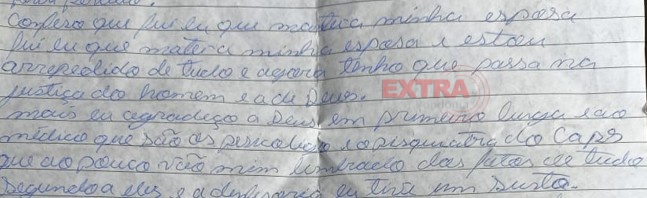 Confeso que fui eu que matei a minha esposa
fui eu que matera minha esposa e estou
arrepedido de tudo e agora tenho que passa na
justiça do homem e a de Deus.
EXTRA
mais eu agradeço a Deus em primeiro lugar e ao
médico que são os e o pisquiatra do Caps
que ao pouco vão mim lembrado dos fatos de tudo
segundo a eles e a eu tive um surto.